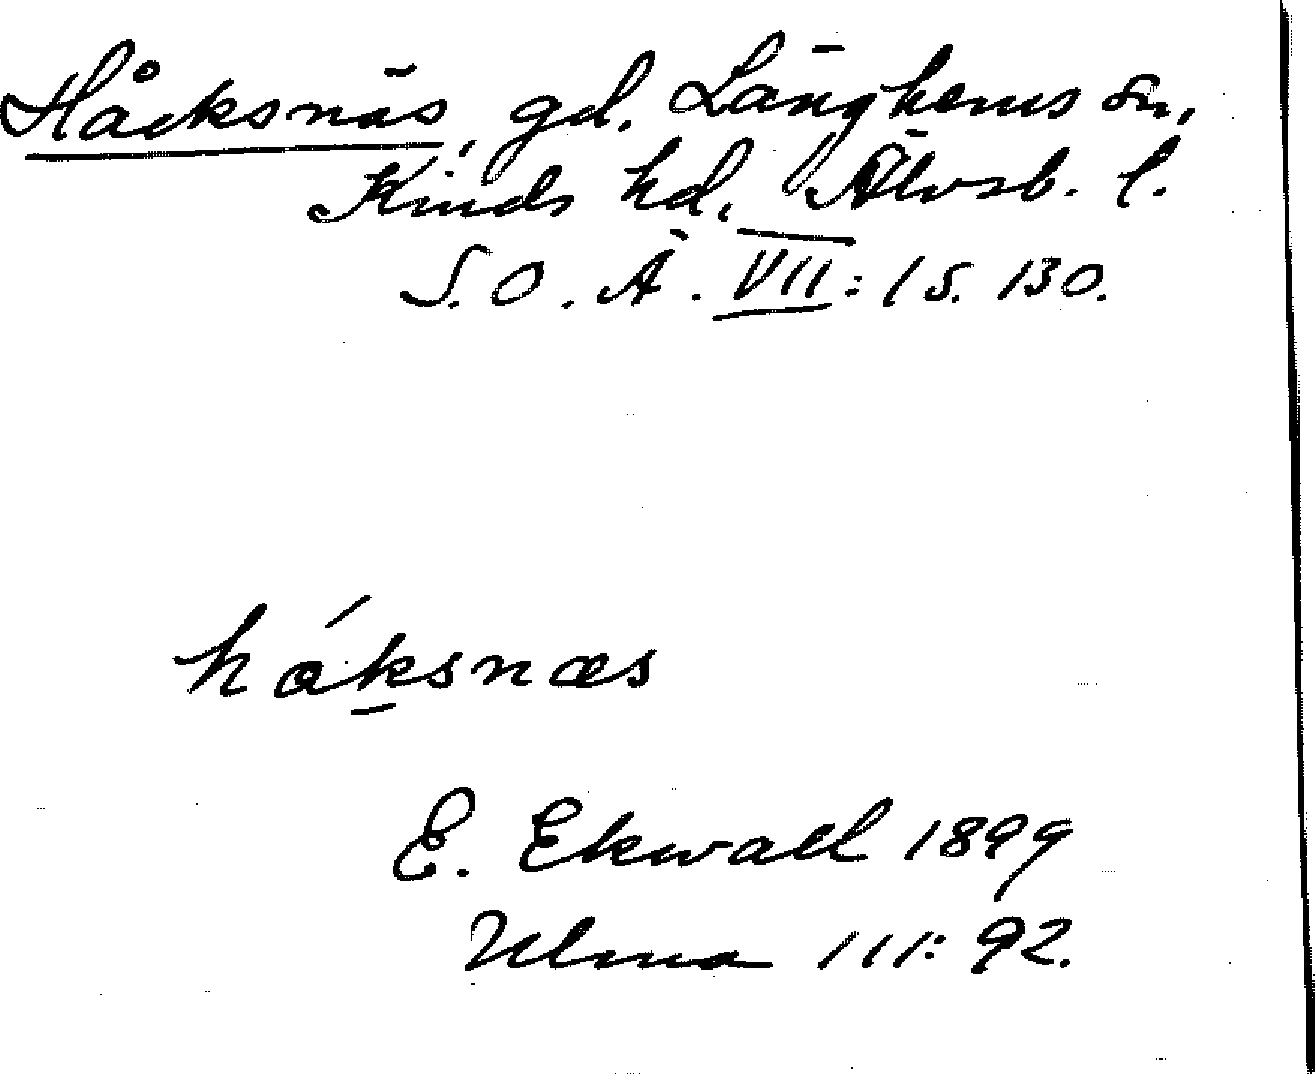 Håcksnäs, gd. Länghems sn,
Kinds hd, Älvsb. l.
S. O. Ä. VII: 1 s. 130.
háksnæs
E. Ekwall 1899
Ulma 111: 92.